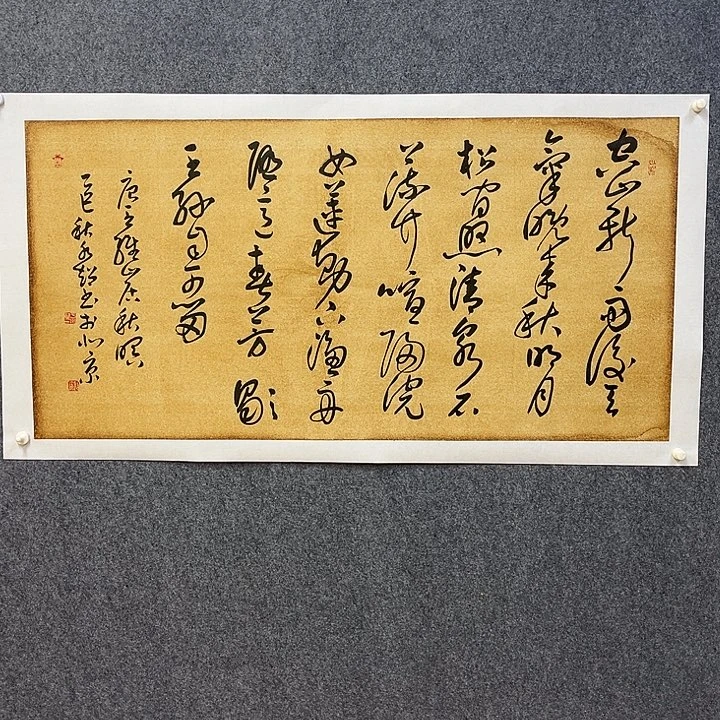 空山新雨後天
氣晚來秋明月
松間照清泉石
上流竹喧歸浣
女蓮動下漁舟
隨意春芳歇
王孫自可留
唐王維山居秋暝
乙巳秋超书於北京